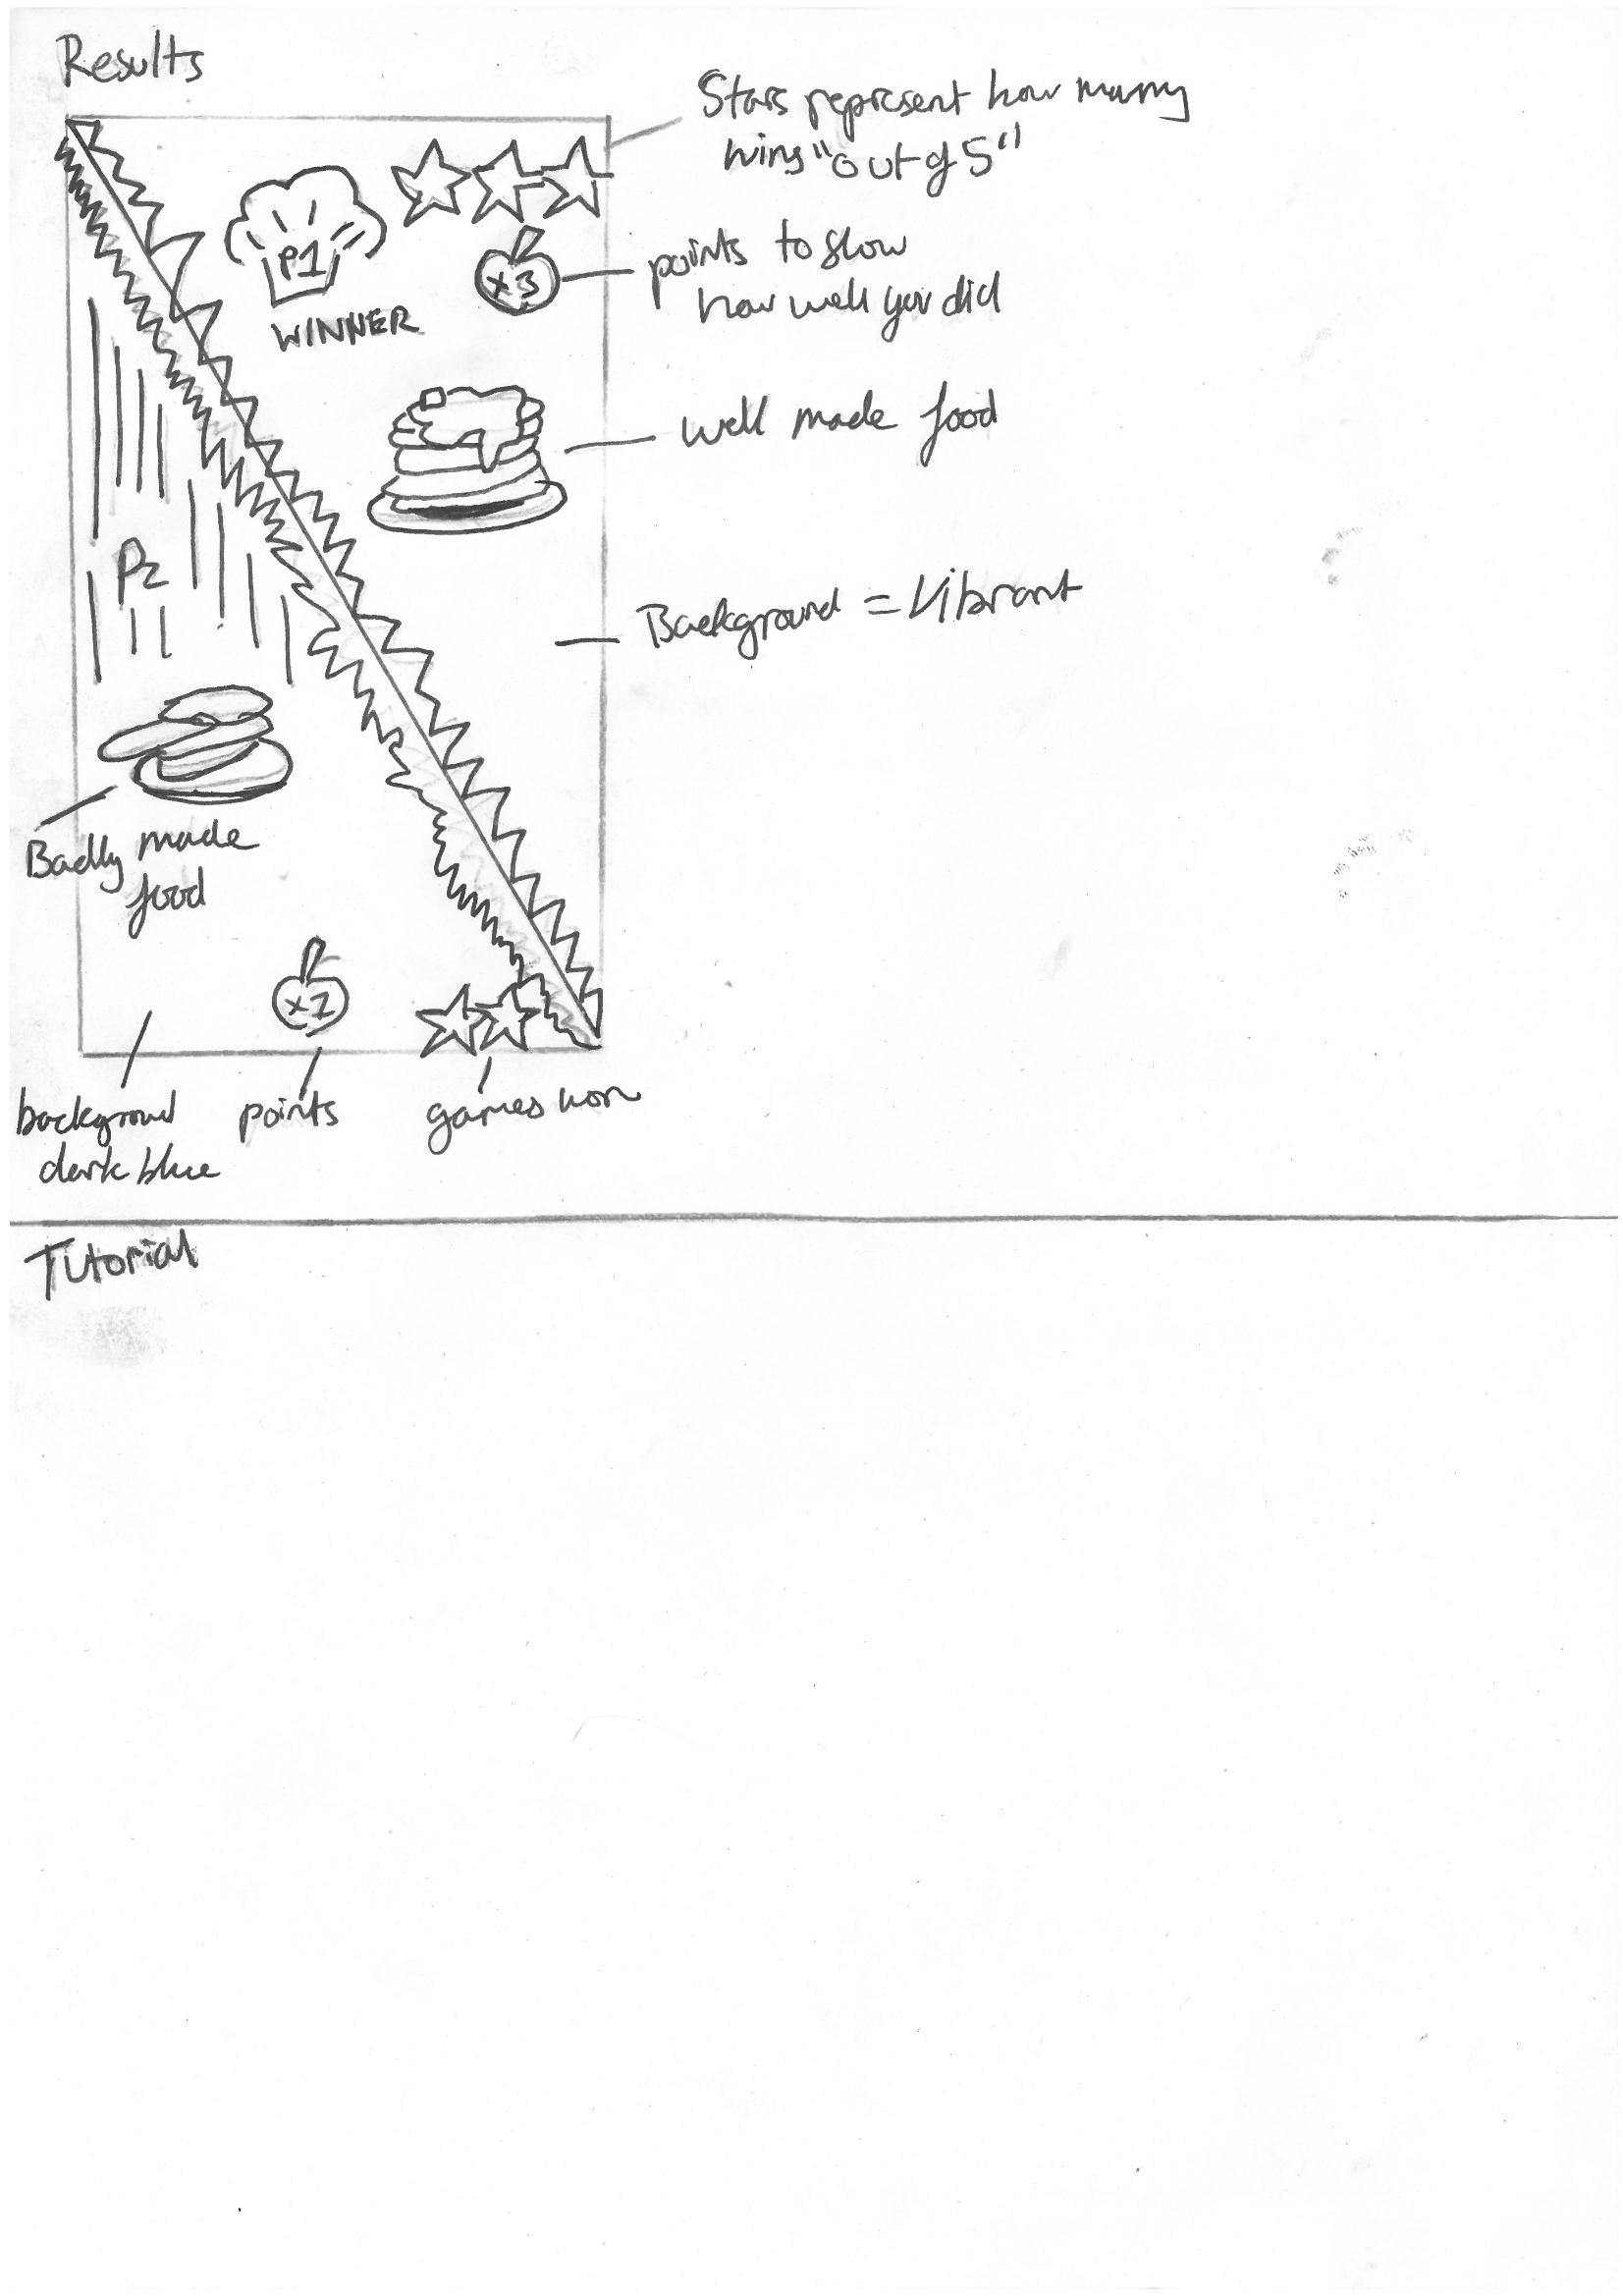 Results
Stars represent how many
wins "out of 5"
P1
WINNER
x3
points to show
how well you did
well made food
P2
Background = Vibrant
Badly made
food
x2
background
dark blue
points
games won
Tutorial